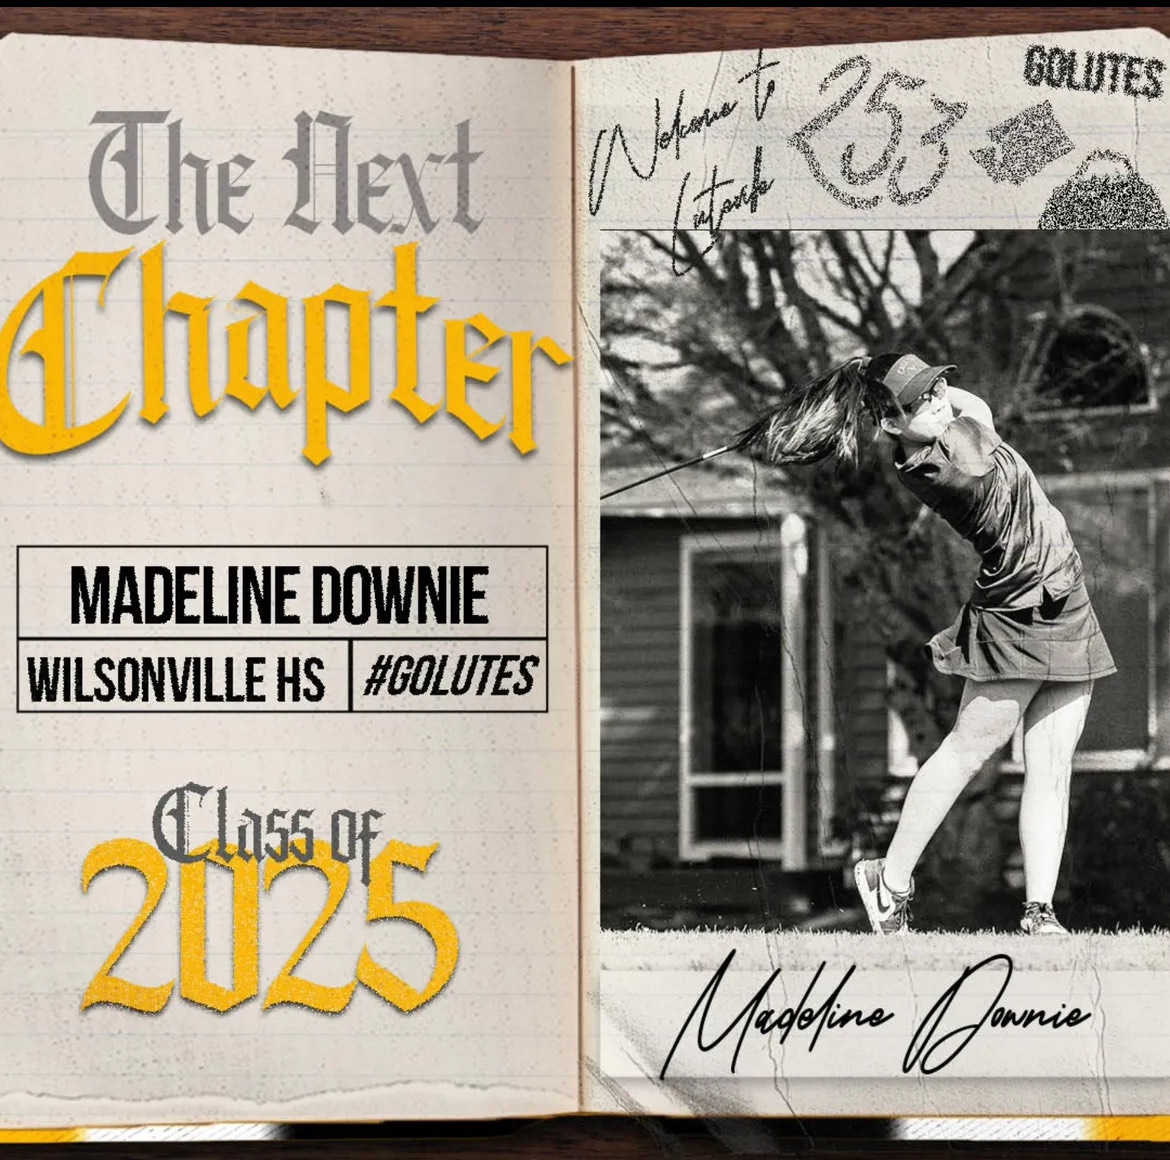 The Next
Chapter
MADELINE DOWNIE
WILSONVILLE HS
#GOLUTES
Class of
2025
Welcome to
Luteville
253
GOLUTES
Madeline Downie